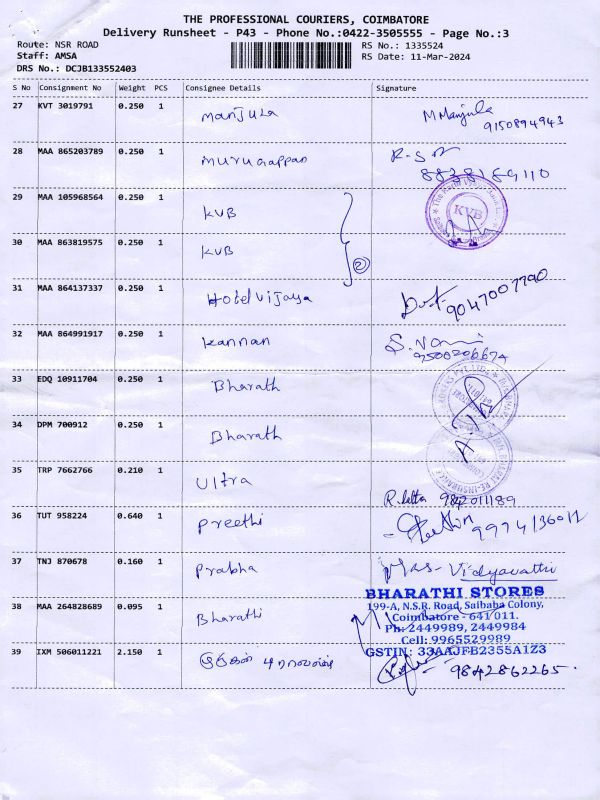 THE PROFESSIONAL COURIERS, COIMBATORE
Delivery Runsheet - P43 - Phone No.:0422-3505555 - Page No.:3
Route: NSR ROAD
Staff: AMSA
DRS No.: DCJB133552403
RS No.: 1335524
RS Date: 11-Mar-2024
S No Consignment No Weight PCS Consignee Details Signature
27 KVT 3019791 0.250 1 Manjula M Manjula
9150894943
28 MAA 865203789 0.250 1 Murugappan
29 MAA 105968564 0.250 1 KVB
KVB
30 MAA 863819575 0.250 1 KVB
2
31 MAA 864137337 0.250 1 Hotel Vijaya 9047007790
32 MAA 864991917 0.250 1 Kannan
9500206674
33 EDQ 10911704 0.250 1 Bharath
34 DPM 700912 0.250 1 Bharath
35 TRP 7662766 0.210 1 Ultra
36 TUT 958224 0.640 1 Preethi
37 TNJ 870678 0.160 1 Prabha Vidyavathi
BHARATHI STORES
199-A, N.S.R. Road, Saibaba Colony,
38 MAA 264828689 0.095 1 Bharathi Coimbatore - 641 011.
Ph: 2449989, 2449984
Cell: 9965529989
GSTIN: 33AAJFB2355A1Z3
39 IXM 506011221 2.150 1
9842862265.